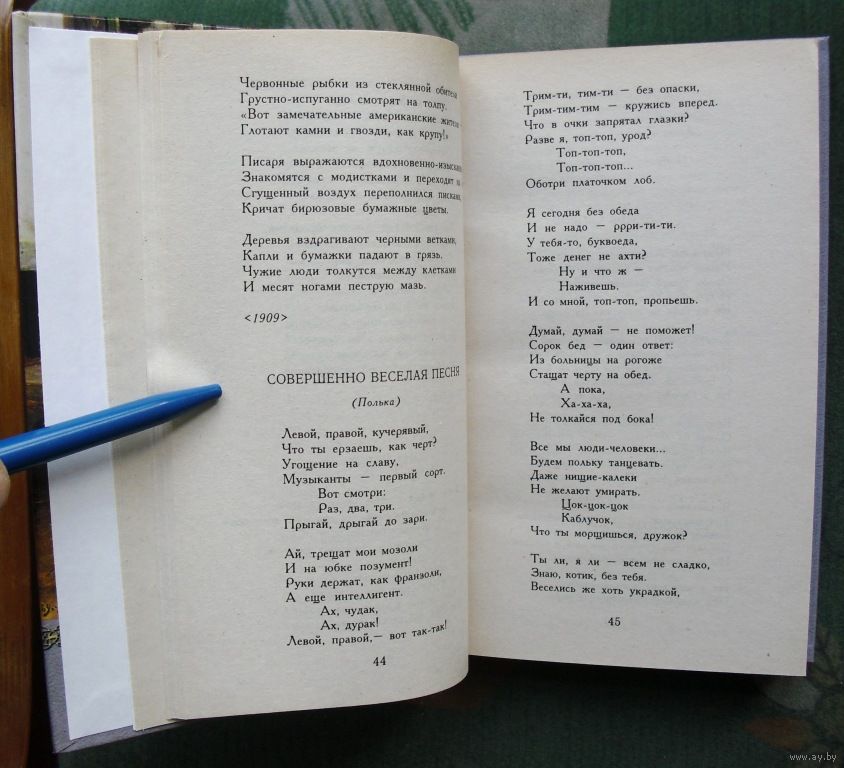 Червонные рыбки из стеклянной обители
Грустно-испуганно смотрят на толпу.
«Вот замечательные американские жители
Глотают камни и гвозди, как крупу!»
Писаря выражаются вдохновенно-изысканно,
Знакомятся с модистками и переходят на
Сгущенный воздух переполнился писками,
Кричат бирюзовые бумажные цветы.
Деревья вздрагивают черными ветками,
Капли и бумажки падают в грязь.
Чужие люди толкутся между клетками
И месят ногами пеструю мазь.
<1909>
СОВЕРШЕННО ВЕСЕЛАЯ ПЕСНЯ
(Полька)
Левой, правой, кучерявый,
Что ты ерзаешь, как черт?
Угощение на славу,
Музыканты — первый сорт.
Вот смотри:
Раз, два, три.
Прыгай, дрыгай до зари.
Ай, трещат мои мозоли
И на юбке позумент!
Руки держат, как франзоли,
А еще интеллигент.
Ах, чудак,
Ах, дурак!
Левой, правой,— вот так-так!
44
Трим-ти, тим-ти — без опаски,
Трим-тим-тим — кружись вперед.
Что в очки запрятал глазки?
Разве я, топ-топ, урод?
Топ-топ-топ,
Топ-топ-топ...
Оботри платочком лоб.
Я сегодня без обеда
И не надо — ррри-ти-ти.
У тебя-то, буквоеда,
Тоже денег не ахти?
Ну и что ж —
Наживешь.
И со мной, топ-топ, пропьешь.
Думай, думай — не поможет!
Сорок бед — один ответ:
Из больницы на рогоже
Стащат черту на обед.
А пока,
Ха-ха-ха,
Не толкайся под бока!
Все мы люди-человеки...
Будем польку танцевать.
Даже нищие-калеки
Не желают умирать.
Цок-цок-цок
Каблучок,
Что ты морщишься, дружок?
Ты ли, я ли — всем не сладко,
Знаю, котик, без тебя.
Веселись же хоть украдкой,
45
www.ay.by